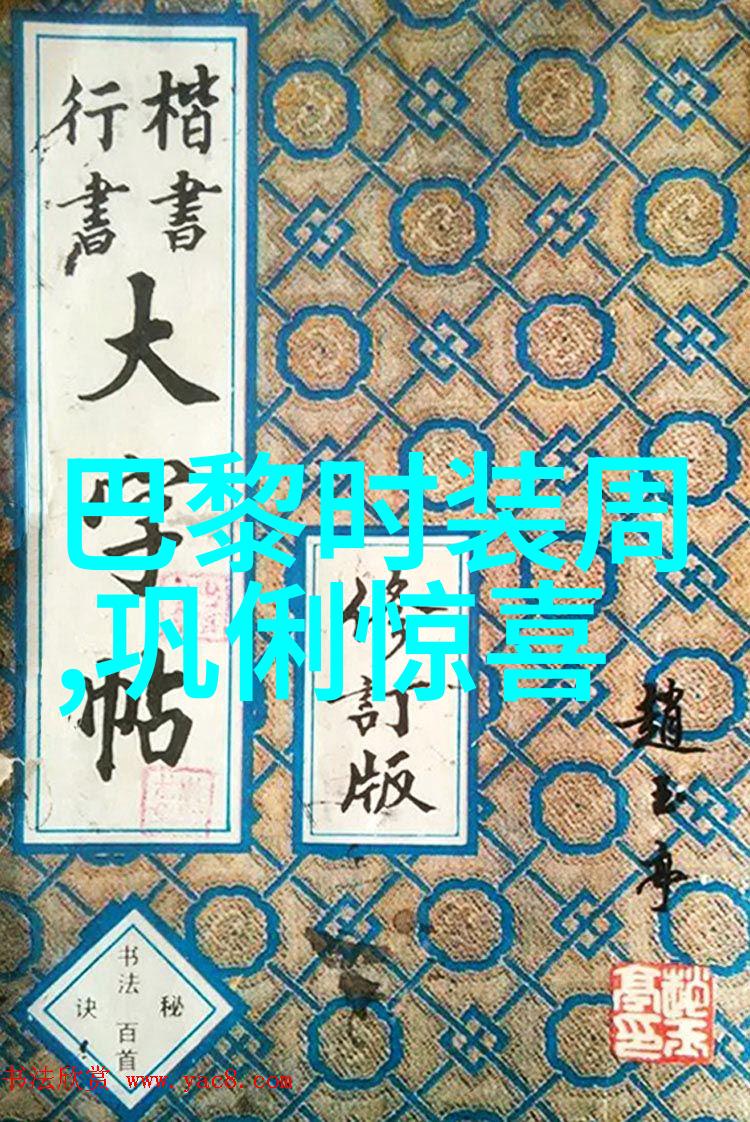 楷書
行書
大字帖
修訂版
趙玉亭
书法
百首
秘
诀
巴黎时装周
,巩俐惊喜
书法欣赏 www.yac8.com